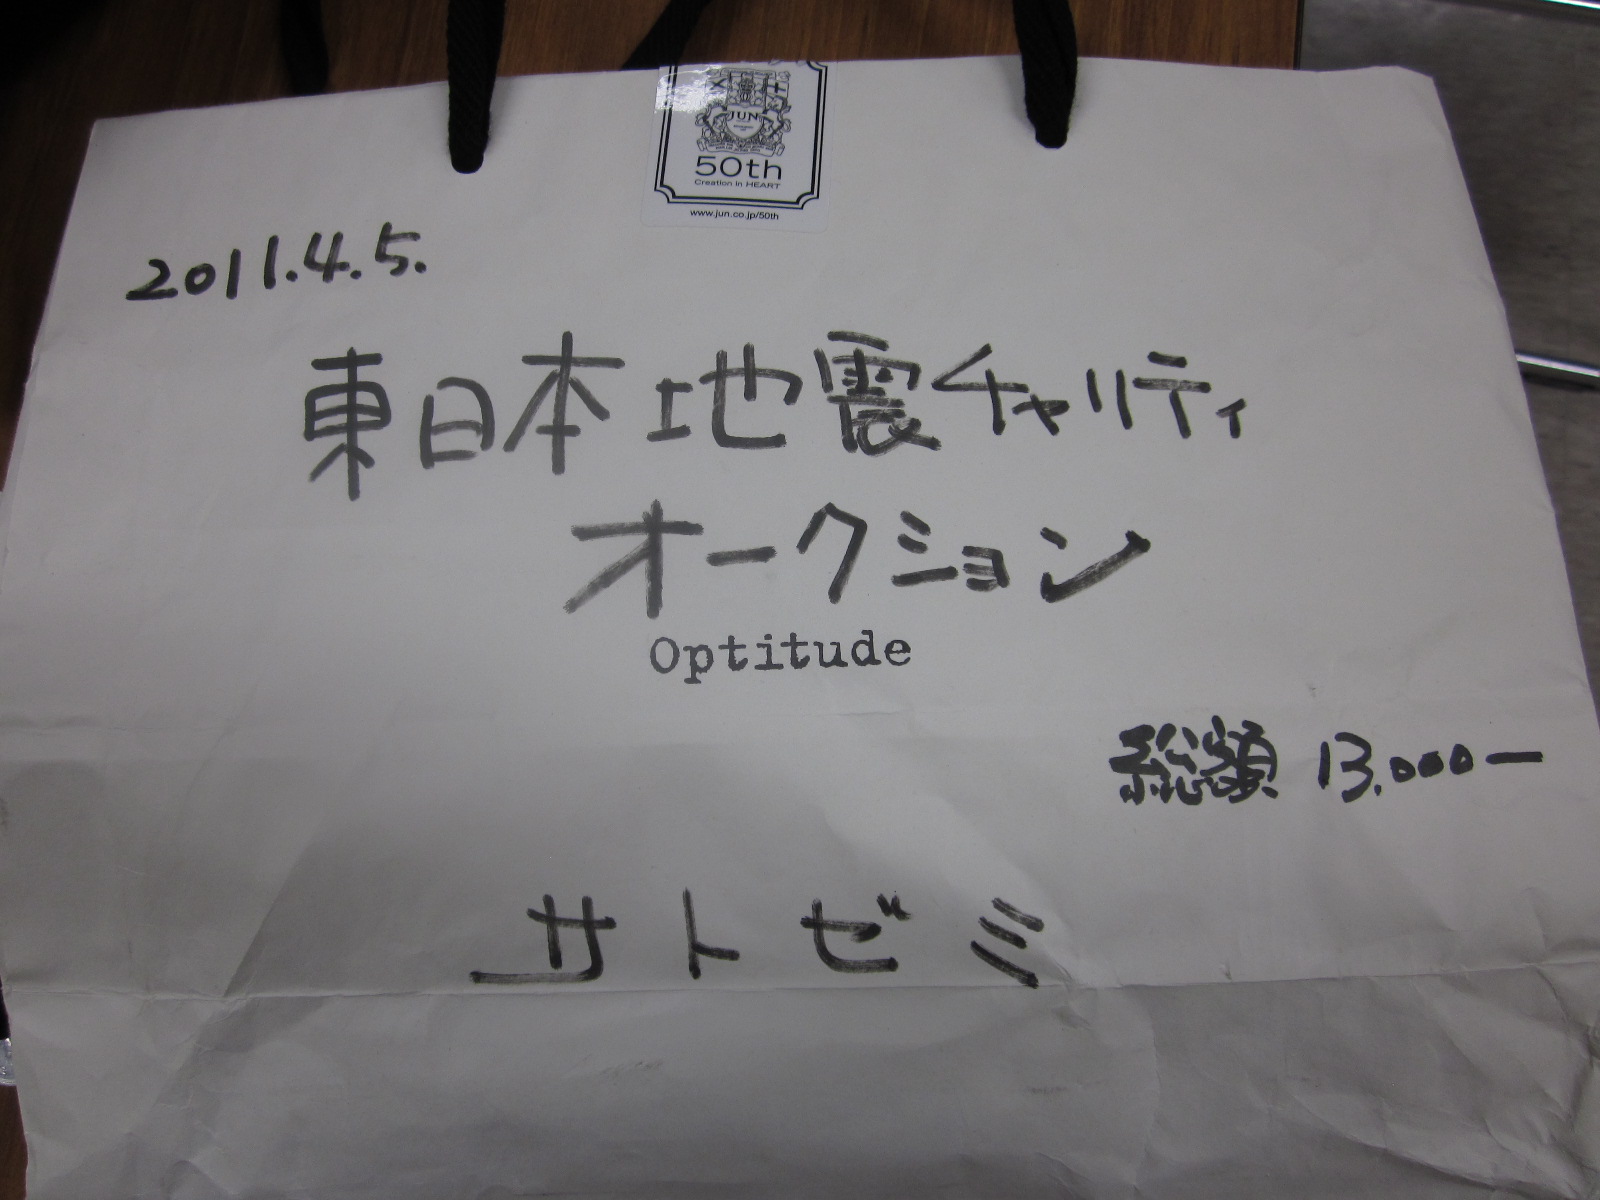 JUN
50th
Creation in HEART
www.jun.co.jp/50th
2011.4.5.
東日本地震チャリティ
オークション
Optitude
総額 13,000ー
サトゼミ